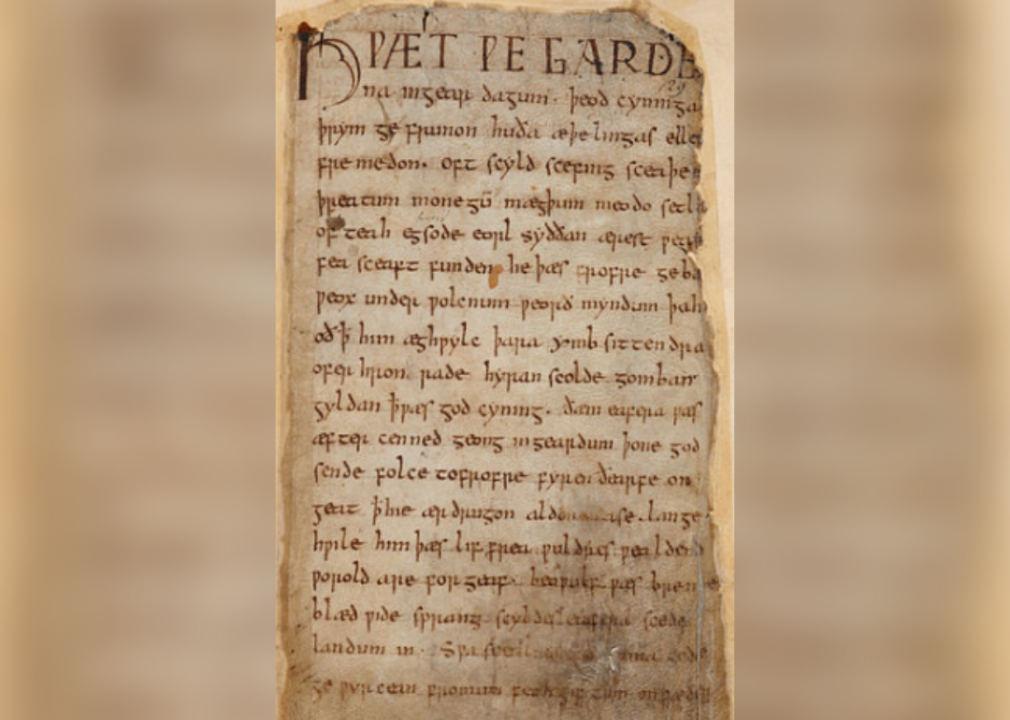 HǷÆT ǷE GARDE
na ingear dagum. þeod cyninga
þrym ge frunon huða æþelingas elle
fremedon. oft scyld scefing sceaþe
þreatum monegū mægþum meodo setla
of teah egsode eorl syððan ærest ƿear
fea sceaft funden he þæs frofre geba
ƿeox under ƿolcnum ƿeorð myndum þah
oð ꝥ him æghƿylc þara ymb sittendra
ofer hron rade hyran scolde gomban
gyldan ꝥ ƿæs god cyning. ðæm eafera ƿæs
æfter cenned geong in geardum þone god
sende folce tofrofre fyren ðearfe on
geat ꝥ hie ær drugon lange
hƿile him þæs lif frea ƿuldres ƿealdend
ƿorold are for geaf. beoƿulf ƿæs breme
blæd ƿide sprang scyldes eafera scede
landum in. Sƿa
ge ƿyrcean fromum feoh giftum